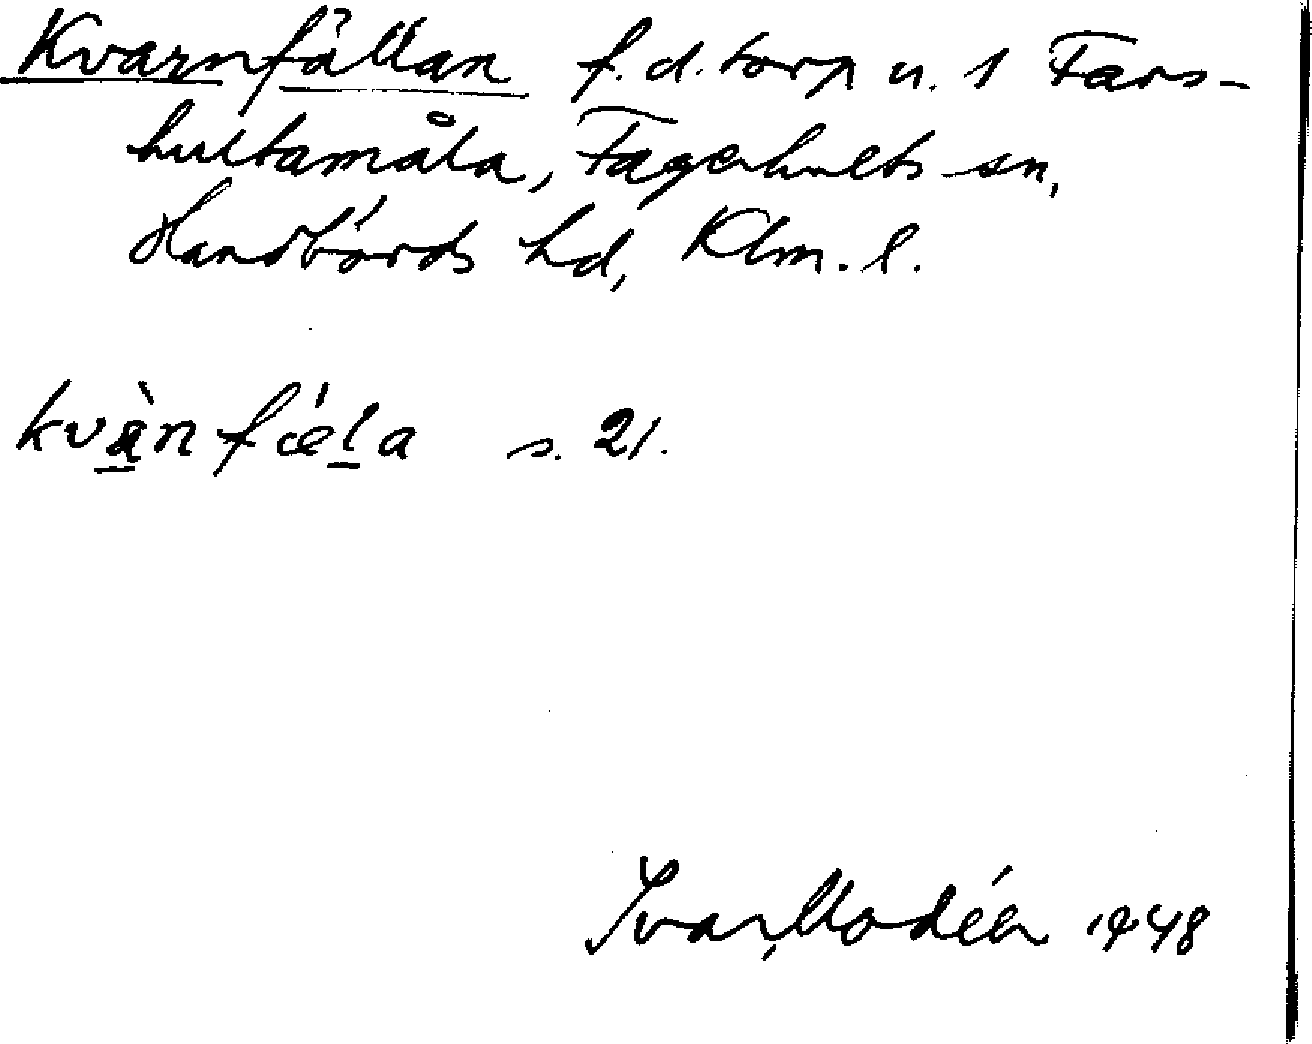 Kvarnfällan f.d. torp u. 1 Fars-
hultamåla, Fagerhults sn,
Handbörds hd, Klm. l.
kvànfǽla s. 21.
Ivar Modéer 1948